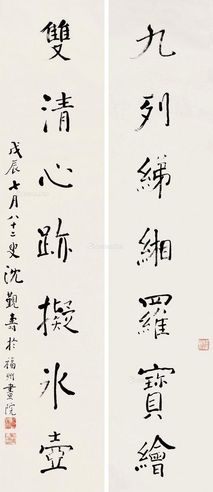 九列綈緗羅寶繪
雙清心跡擬冰壺
戊辰七月八十二叟沈覲壽於福州畫院